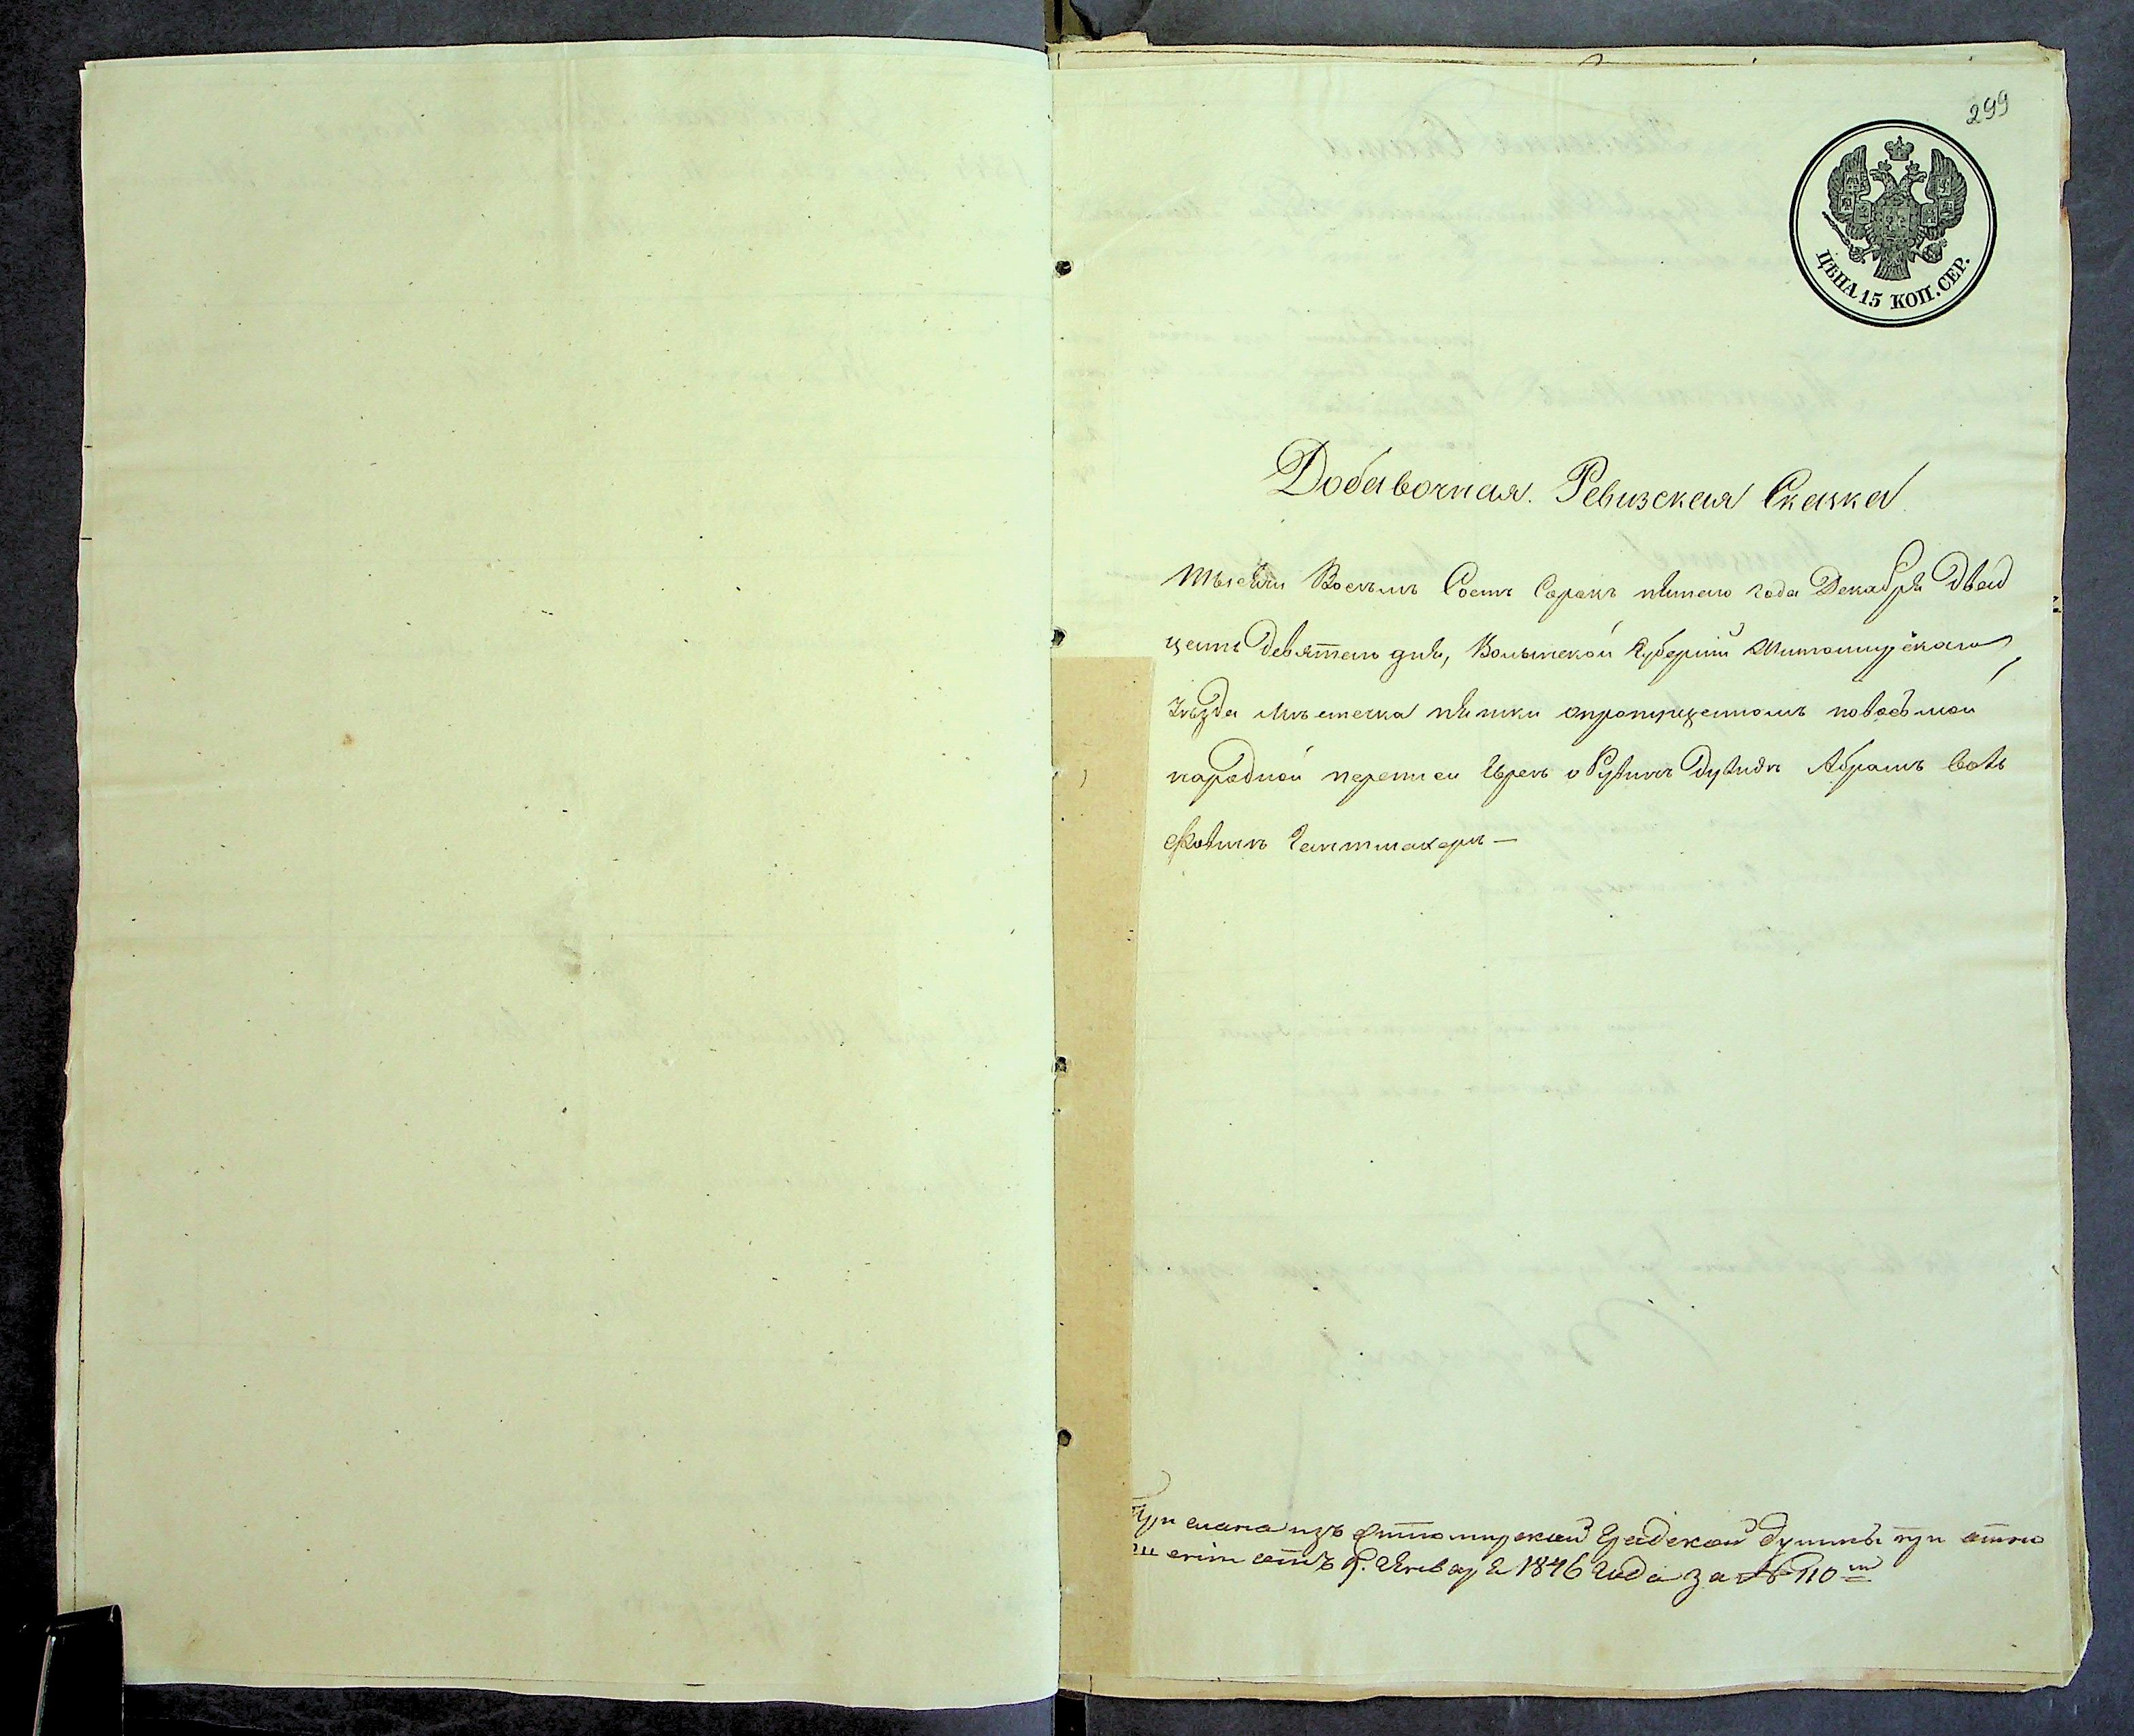 299
ЦѢНА 15 КОП. СЕР.
Добавочная. Ревизская Сказка
Тысячи Восемь Сотъ Сорокъ пятаго года Декабря двад
цать девятаго дня, Волынской Губерніи Житомирскаго
Уѣзда Мѣстечка пятки о пропущенномъ по восьмой
народной переписи Евреѣ Рувинъ Дувидъ Абрамъ
Гантмахеръ —
Прислана изъ Житомирской Градской думы при отно
шеніи отъ 9. Января 1846 года за № 110м